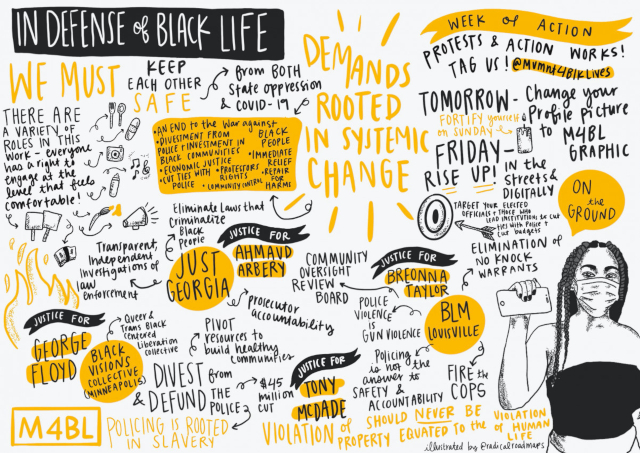 IN DEFENSE of BLACK LIFE
WE MUST
KEEP
EACH OTHER
SAFE
from BOTH
State oppression
& COVID-19
THERE ARE
A VARIETY OF
ROLES IN THIS
WORK - everyone
has a right to
engage at the
level that feels
comfortable!
•AN END TO the War against
BLACK
PEOPLE
•DIVESTMENT FROM
POLICE & INVESTMENT IN
BLACK COMMUNITIES
•IMMEDIATE
RELIEF
•ECONOMIC JUSTICE
•CUT TIES WITH
POLICE
•PROTESTORS'
RIGHTS
•REPAIR
FOR
HARMS
•COMMUNITY CONTROL
DEMANDS
ROOTED
IN SYSTEMIC
CHANGE
WEEK of ACTION
PROTESTS & ACTION WORKS!
TAG US! @Mvmnt4BlkLives
TOMORROW-
FORTIFY yourself
on SUNDAY
Change your
Profile picture
to M4BL
GRAPHIC
FRIDAY-
RISE UP!
IN the
STREETS &
DIGITALLY
TARGET YOUR ELECTED
OFFICIALS & THOSE WHO
LEAD INSTITUTIONS to cut
ties with Police &
Cut budgets
ON
the
GROUND
Eliminate Laws that
Criminalize
Black
People
Transparent,
Independent
Investigations of
law
enforcement
JUST
GEORGIA
JUSTICE FOR
AHMAUD
ARBERY
prosecutor
accountability
COMMUNITY
OVERSIGHT
REVIEW
BOARD
JUSTICE FOR
BREONNA
TAYLOR
ELIMINATION of
NO KNOCK
WARRANTS
BLM
LOUISVILLE
POLICE
VIOLENCE
is
GUN VIOLENCE
Policing
is not the
answer to
SAFETY &
ACCOUNTABILITY
FIRE the
COPS
JUSTICE FOR
GEORGE
FLOYD
Queer &
Trans Black
Centered
Liberation
collective
BLACK
VISIONS
COLLECTIVE
(MINNEAPOLIS)
PIVOT
resources to
build healthy
communities
DIVEST from
& DEFUND THE
POLICE
$45
million
CUT
JUSTICE FOR
TONY
McDADE
M4BL
POLICING IS ROOTED
IN SLAVERY
VIOLATION of PROPERTY SHOULD NEVER BE
EQUATED to the VIOLATION
OF HUMAN
LIFE
illustrated by @radicalroadmaps